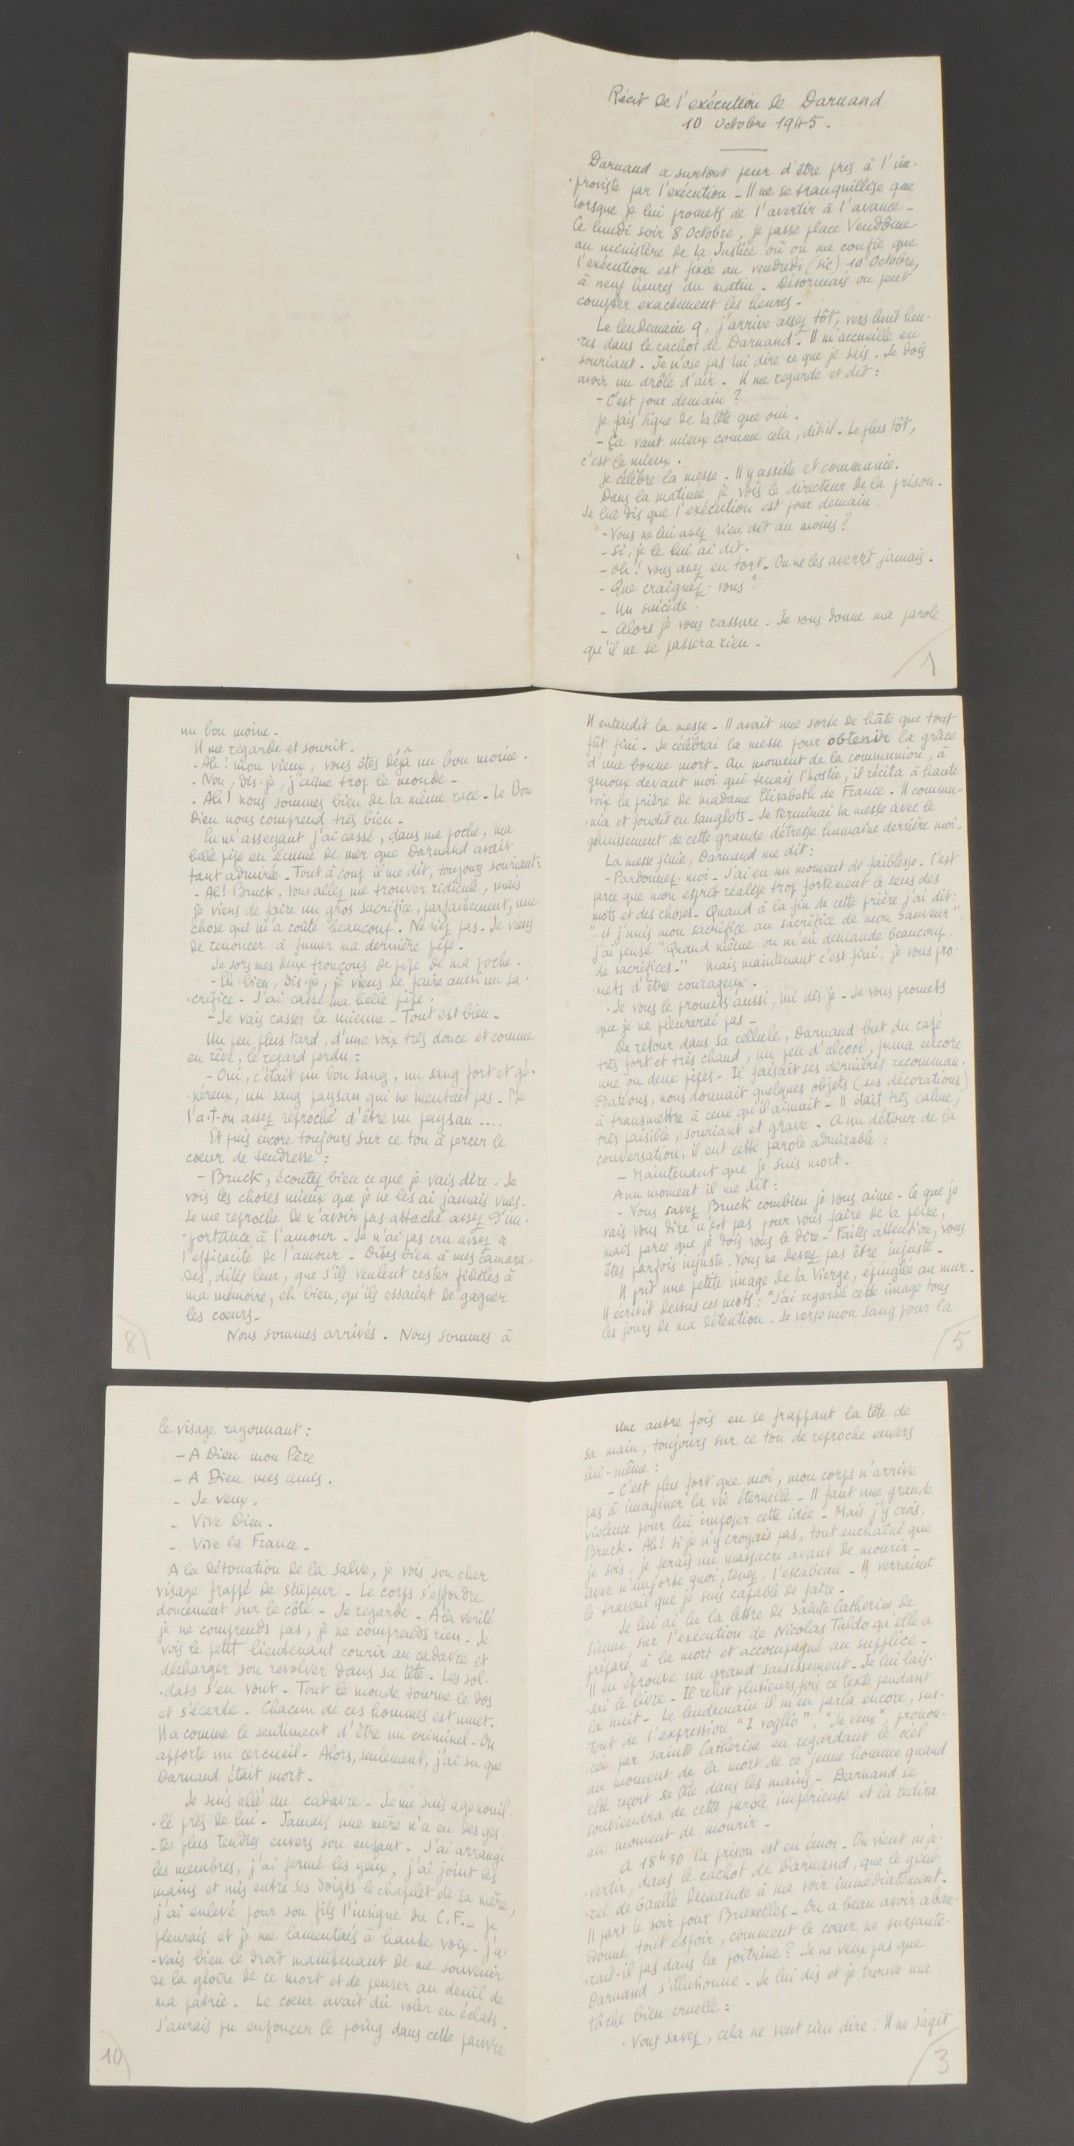 Récit de l'exécution de Darnand
10 octobre 1945.
Darnand a surtout peur d'être pris à l'im-
-proviste par l'exécution - Il ne se tranquillise que
lorsque je lui promets de l'avertir à l'avance -
Ce lundi soir 8 Octobre, je passe place Vendôme
au ministère de la Justice où on me confie que
l'exécution est fixée au vendredi (sic) 10 Octobre,
à neuf heures du matin - Désormais on peut
compter exactement les heures -
Le lendemain 9, j'arrive assez tôt, vers huit heu-
-res dans le cachot de Darnand - Il m'accueille en
souriant - Je n'ose pas lui dire ce que je sais - Je dois
avoir un drôle d'air - Il me regarde et dit :
- C'est pour demain ?
Je fais signe de la tête que oui.
- Ça vaut mieux comme cela, dit-il - Le plus tôt,
c'est le mieux.
Je célèbre la messe - Il y assiste et communie.
Dans la matinée je vois le directeur de la prison -
Je lui dis que l'exécution est pour demain.
- Vous ne lui avez rien dit au moins ?
- Si, je le lui ai dit -
- Oh ! vous avez eu tort - On ne les avertit jamais -
- Que craignez-vous ?
- Un suicide.
- Alors je vous rassure - Je vous donne ma parole
qu'il ne se passera rien -
1
un bon moine -
Il me regarde et sourit -
- Ah ! mon vieux, vous êtes déjà un bon moine -
- Non, dis-je, j'aime trop le monde -
- Ah ! nous sommes bien de la même race - Le Bon
Dieu nous comprend très bien -
En m'asseyant j'ai cassé, dans ma poche, ma
belle pipe en écume de mer que Darnand avait
tant admirée - Tout à coup il me dit, toujours souriant :
- Ah ! Bruck, vous allez me trouver ridicule, mais
je viens de faire un gros sacrifice, parfaitement, une
chose qui m'a coûté beaucoup - Ne riez pas - Je viens
de renoncer à fumer ma dernière pipe -
Je sors mes deux tronçons de pipe de ma poche -
- Eh bien, dis-je, je viens de faire aussi un sa-
-crifice - J'ai cassé ma belle pipe -
- Je vais casser la mienne - Tout est bien -
Un peu plus tard, d'une voix très douce et comme
en rêve, le regard perdu :
- Oui, c'était un bon sang, un sang fort et gé-
-néreux, un sang paysan qui ne mentait pas - Me
l'a-t-on assez reproché d'être un paysan ....
Et puis encore toujours sur ce ton à percer le
coeur de tendresse :
- Bruck, écoutez bien ce que je vais dire - Je
vois les choses mieux que je ne les ai jamais vues -
Je me reproche de n'avoir pas attaché assez d'im-
-portance à l'amour - Je n'ai pas cru assez à
l'efficacité de l'amour - Dites bien à mes camara-
-des, dites leur, que s'ils veulent rester fidèles à
ma mémoire, eh bien, qu'ils essaient de gagner
les coeurs -
Nous sommes arrivés - Nous sommes à
8
Il entendit la messe - Il avait une sorte de hâte que tout
fût fini - Je célébrai la messe pour obtenir la grâce
d'une bonne mort - Au moment de la communion, à
genoux devant moi qui tenais l'hostie, il récita à haute
voix la prière de Madame Elisabeth de France - Il commu-
-nia et fondit en sanglots - Je terminai la messe avec le
gémissement de cette grande détresse humaine derrière moi -
La messe finie, Darnand me dit :
- Pardonnez-moi - J'ai eu un moment de faiblesse - C'est
parce que mon esprit réalise trop fortement le sens des
mots et des choses - Quand à la fin de cette prière j'ai dit :
"et j'unis mon sacrifice au sacrifice de mon Sauveur",
j'ai pensé "Quand même on m'en demande beaucoup
de sacrifices - " Mais maintenant c'est fini, je vous pro-
-mets d'être courageux -
- Je vous le promets aussi, lui dis-je - Je vous promets
que je ne pleurerai pas -
De retour dans sa cellule, Darnand but du café
très fort et très chaud, un peu d'alcool, fuma encore
une ou deux pipes - Il faisait ses dernières recomman-
-dations, nous donnait quelques objets (ses décorations)
à transmettre à ceux qu'il aimait - Il était très calme,
très paisible, souriant et grave - Au détour de la
conversation, il eut cette parole admirable :
- Maintenant que je suis mort -
A un moment il me dit :
- Vous savez Bruck combien je vous aime - Ce que je
vais vous dire n'est pas pour vous faire de la peine,
mais parce que je dois vous le dire - Faites attention, vous
êtes parfois injuste - Vous ne devez pas être injuste -
Il prit une petite image de la Vierge, épinglée au mur -
Il écrivit dessus ces mots : "J'ai regardé cette image tous
les jours de ma détention - Je verse mon sang pour la
5
le visage rayonnant :
- A Dieu mon Père
- A Dieu mes amis.
- Je veux.
- Vive Dieu -
- Vive la France -
A la détonation de la salve, je vois son cher
visage frappé de stupeur - Le corps s'effondre
doucement sur le côté - Je regarde - A la vérité
je ne comprends pas, je ne comprends rien - Je
vois le petit lieutenant courir au cadavre et
décharger son revolver dans sa tête - Les sol-
-dats s'en vont - Tout le monde tourne le dos
et s'écarte - Chacun de ces hommes est muet -
Il a comme le sentiment d'être un criminel - On
apporte un cercueil - Alors, seulement, j'ai su que
Darnand était mort -
Je suis allé au cadavre - Je me suis agenouil-
-lé près de lui - Jamais une mère n'a eu des ges-
-tes plus tendres envers son enfant - J'ai arrangé
les membres, j'ai fermé les yeux, j'ai joint les
mains et mis entre ses doigts le chapelet de sa mère,
j'ai enlevé pour son fils l'insigne du C.F. - Je
pleurais et je me lamentais à haute voix - J'a-
-vais bien le droit maintenant de me souvenir
de la gloire de ce mort et de penser au deuil de
ma patrie - Le coeur avait dû voler en éclats -
J'aurais pu enfoncer le poing dans cette pauvre
10
Une autre fois en se frappant la tête de
sa main, toujours sur ce ton de reproche envers
lui-même :
- C'est plus fort que moi, mon corps n'arrive
pas à imaginer la vie éternelle - Il faut une grande
violence pour lui imposer cette idée - Mais j'y crois,
Bruck - Ah ! si je n'y croyais pas, tout enchaîné que
je sois, je ferais un massacre avant de mourir -
avec n'importe quoi, tenez, l'escabeau - Ils verraient
le travail que je suis capable de faire -
Je lui ai lu la lettre de Sainte Catherine de
Sienne sur l'exécution de Nicolas Tuldo qu'elle a
préparé à la mort et accompagné au supplice -
Il en éprouve un grand saisissement - Je lui lais-
-sai le livre - Il relut plusieurs fois ce texte pendant
la nuit - Le lendemain il m'en parla encore, sur-
tout de l'expression "I voglio", "Je veux", pronon-
-cée par sainte Catherine en regardant le ciel
au moment de la mort de ce jeune homme quand
elle reçoit sa tête dans les mains - Darnand se
souviendra de cette parole impérieuse et la redira
au moment de mourir -
A 18h30 la prison est en émoi - On vient m'a-
-vertir, dans le cachot de Darnand, que le géné-
-ral de Gaulle demande à me voir immédiatement -
Il part le soir pour Bruxelles - On a beau avoir aban-
donné tout espoir, comment le coeur ne sursaute-
-rait-il pas dans la poitrine ? Je ne veux pas que
Darnand s'illusionne - Je lui dis et je trouve ma
tâche bien cruelle :
- Vous savez, cela ne veut rien dire - Il ne s'agit
3